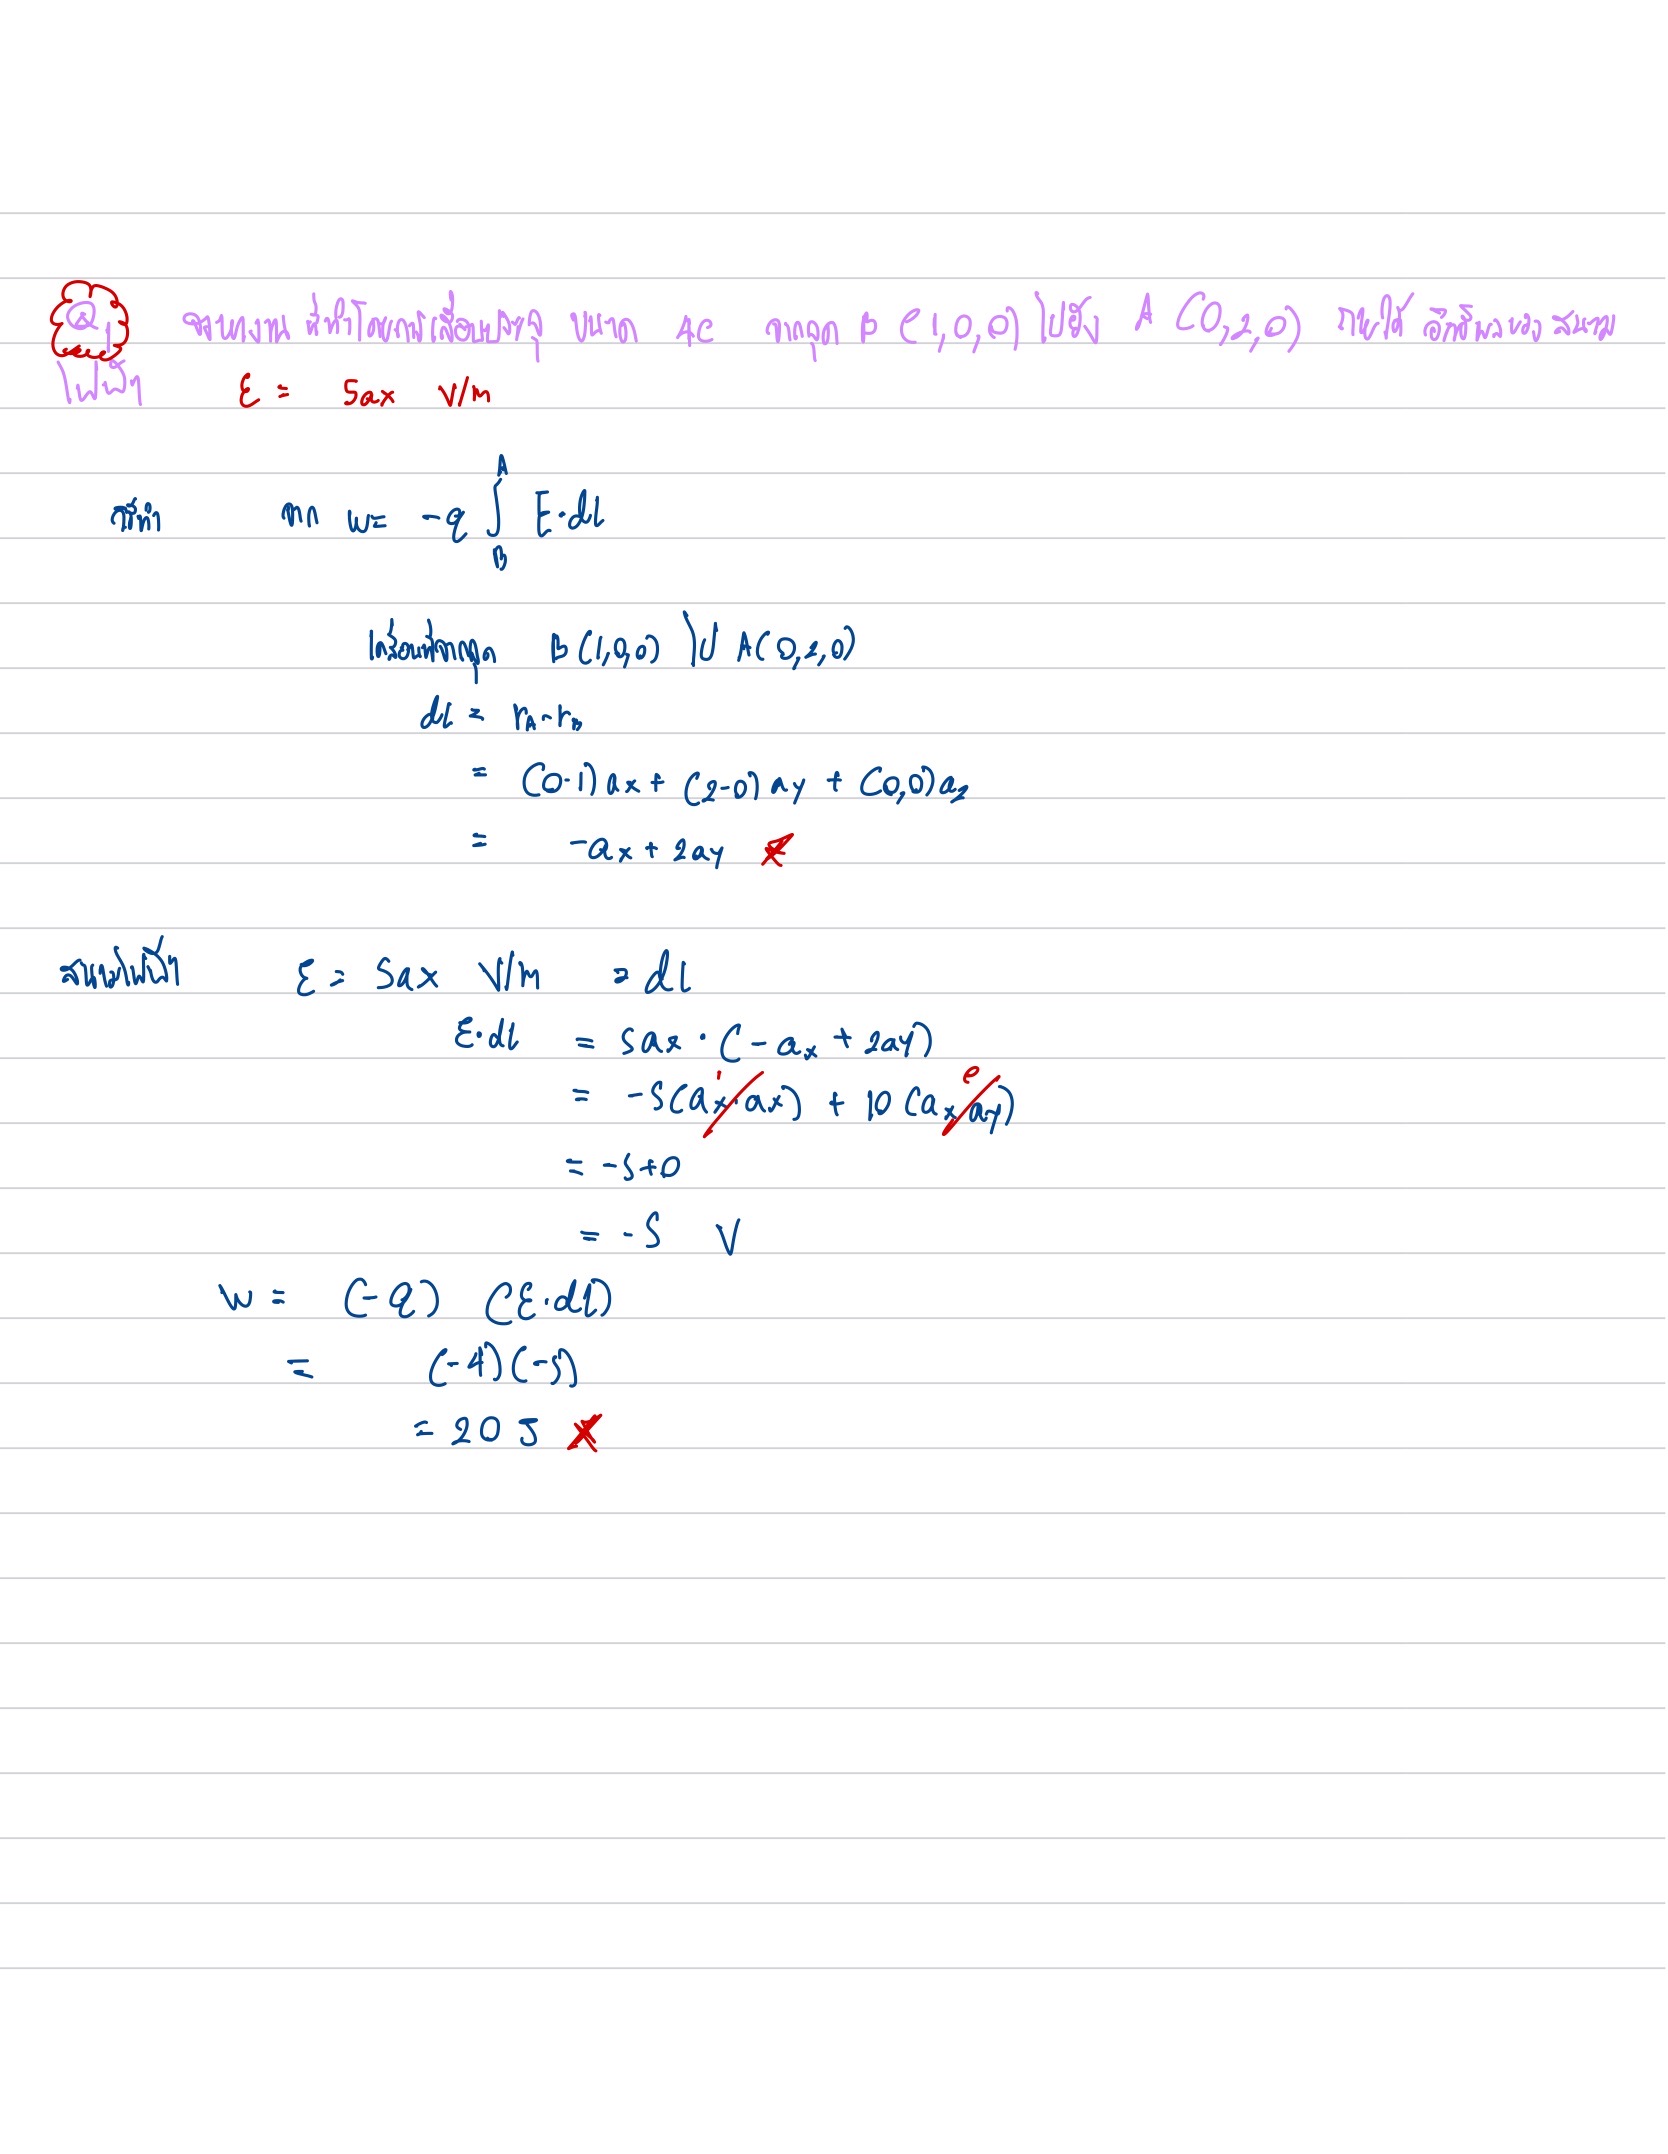 Q1 จงหางาน ที่ทำโดยการเลื่อนประจุ ขนาด 4C จากจุด B (1,0,0) ไปยัง A (0,2,0) ภายใต้ อิทธิพลของ สนาม
ไฟฟ้า E = 5ax V/m
วิธีทำ จาก W = -q ∫ E·dL
A
B
เคลื่อนที่จากจุด B (1,0,0) ไป A(0,2,0)
dL = rA-rB
= (0-1)ax + (2-0)ay + (0,0)az
= -ax + 2ay
สนามไฟฟ้า E = 5ax V/m = dL
E·dL = 5ax · (-ax + 2ay)
= -5(ax·ax) + 10(ax·ay)
= -5+0
= -5 V
W = (-q) (E·dL)
= (-4)(-5)
= 20 J